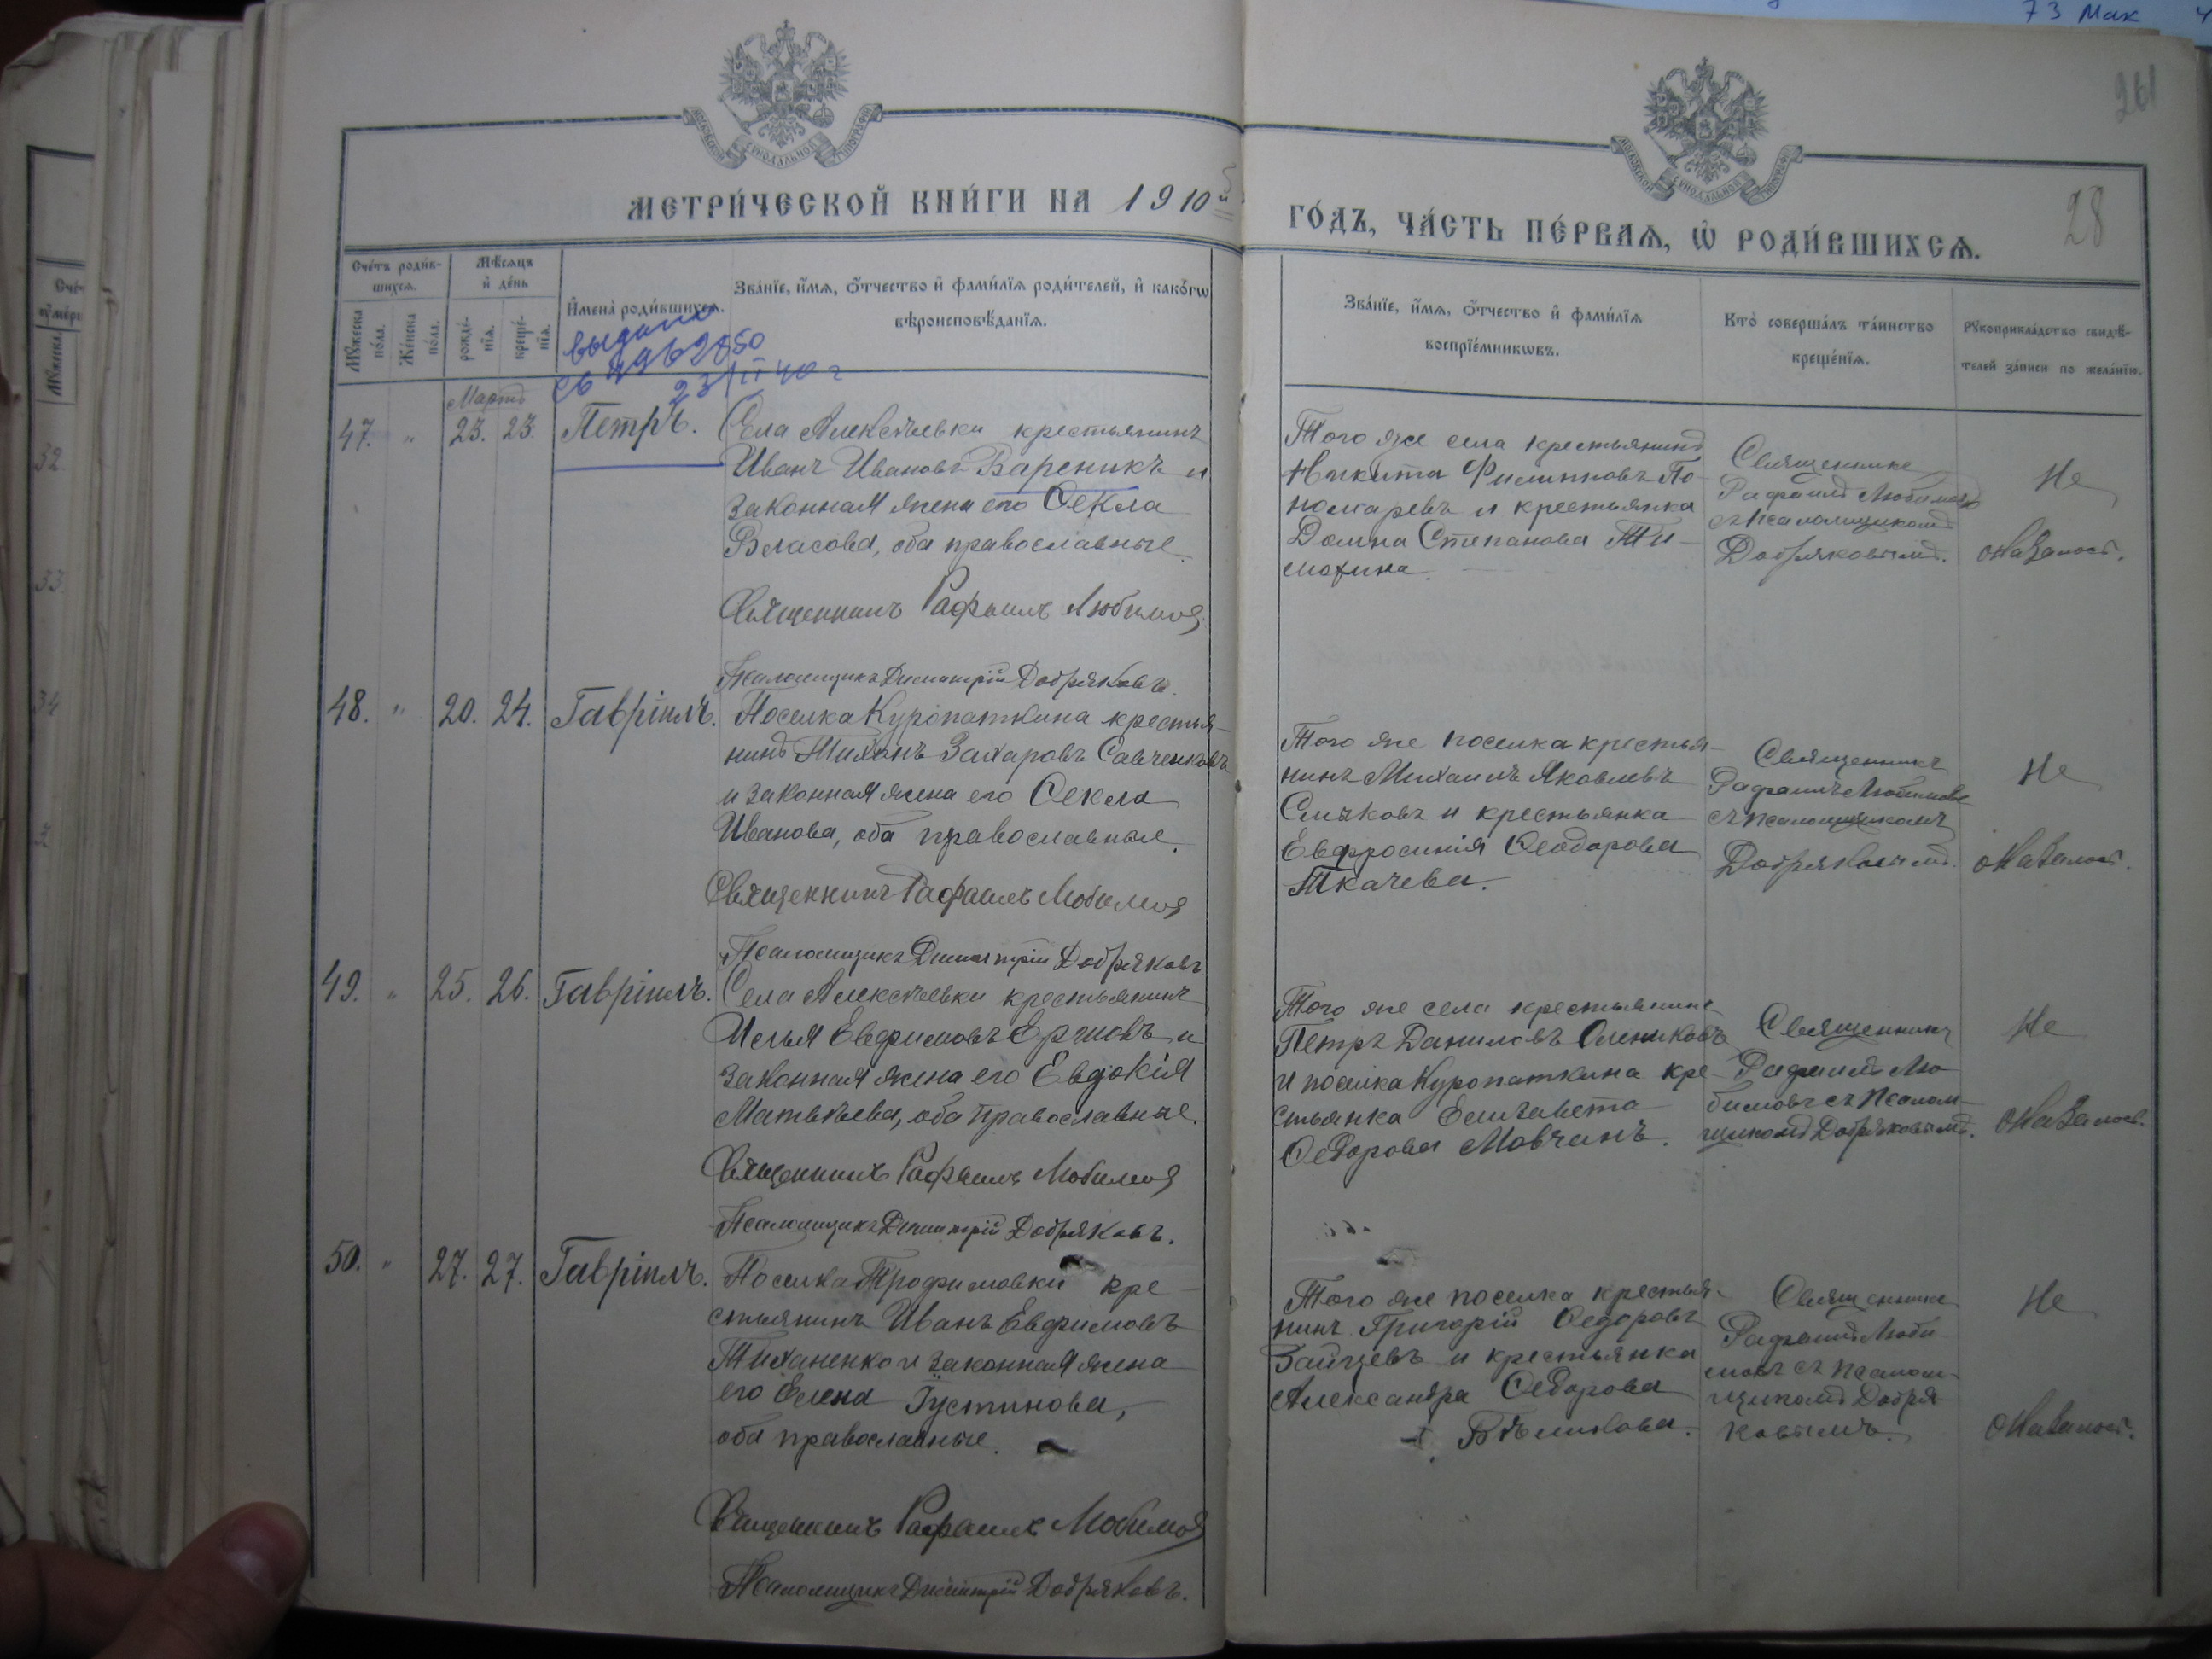 73 Мак
261
28
МОСКОВСКОЙ СѴНОДАЛЬНОЙ ТИПОГРАФІИ
МОСКОВСКОЙ СѴНОДАЛЬНОЙ ТИПОГРАФІИ
МЕТРИ́ЧЕСКОЙ КНИ́ГИ НА 1910й
ГО́ДЪ, ЧА́СТЬ ПЕ́РВАѦ, Ѡ҆ РОДИ́ВШИХСѦ.
Сче́тъ роди́в-
шихсѧ.
Мꙋ́жеска по́ла.
Же́нска по́ла.
Мѣ́сѧцъ
и҆ де́нь
рожде́-
нїѧ.
креще́-
нїѧ.
И҆мена̀ роди́вшихсѧ.
Зва́нїе, и҆́мѧ, ѻ҆́тчество и҆ фами́лїѧ роди́телей, и҆ како́гѡ
вѣроисповѣ́данїѧ.
Зва́нїе, и҆́мѧ, ѻ҆́тчество и҆ фами́лїѧ
воспрїе́мникѡвъ.
Кто̀ соверша́лъ та́инство
креще́нїѧ.
Рꙋкоприкла́дство свидѣ́-
телей за́писи по жела́нїю.
выдано
св
23/II 40 г
Мартъ
47. " 23. 23. Петръ.
Села Алексѣевки крестьянинъ
Иванъ Ивановъ Вареникъ и
законная жена его Ѳекла
Власова, оба православные.
Священникъ Рафаилъ Любимов
Псаломщикъ Димитрій Добряковъ.
Того же села крестьянинъ
Никита Филипповъ По-
номаревъ и крестьянка
Домна Степанова Ти-
мохина.
Священникъ
Рафаилъ Любимовъ
съ псаломщикомъ
Добряковымъ.
Не
оказалось.
48. " 20. 24. Гавріилъ.
Поселка Куропаткина крестья-
нинъ Тихонъ Захаровъ Савченковъ
и законная жена его Ѳекла
Иванова, оба православные.
Священникъ Рафаилъ Любимов
Псаломщикъ Димитрій Добряковъ.
Того же поселка крестья-
нинъ Михаилъ Яковлевъ
Сычковъ и крестьянка
Евфросинія Ѳеодорова
Ткачева.
Священникъ
Рафаилъ Любимовъ
съ псаломщикомъ
Добряковымъ.
Не
оказалось.
49. " 25. 26. Гавріилъ.
Села Алексѣевки крестьянинъ
Илья Евфимовъ Ершовъ и
законная жена его Евдокія
Матвѣева, оба православные.
Священникъ Рафаилъ Любимов
Псаломщикъ Димитрій Добряковъ.
Того же села крестьянинъ
Петръ Даниловъ Олениковъ
и поселка Куропаткина кре-
стьянка Елизавета
Ѳедорова Мовчанъ.
Священникъ
Рафаилъ Лю-
бимовъ съ псалом-
щикомъ Добряковымъ.
Не
оказалось.
50. " 27. 27. Гавріилъ.
Поселка Трофимовки кре-
стьянинъ Иванъ Евфимовъ
Тиханенко и законная жена
его Елена Іустинова,
оба православные.
Священникъ Рафаилъ Любимов
Псаломщикъ Димитрій Добряковъ.
Того же поселка крестья-
нинъ Григорій Ѳедоровъ
Зайцевъ и крестьянка
Александра Ѳедорова
Бѣликова.
Священникъ
Рафаилъ Люби-
мовъ съ псалом-
щикомъ Добря-
ковымъ.
Не
оказалось.
32
33
34